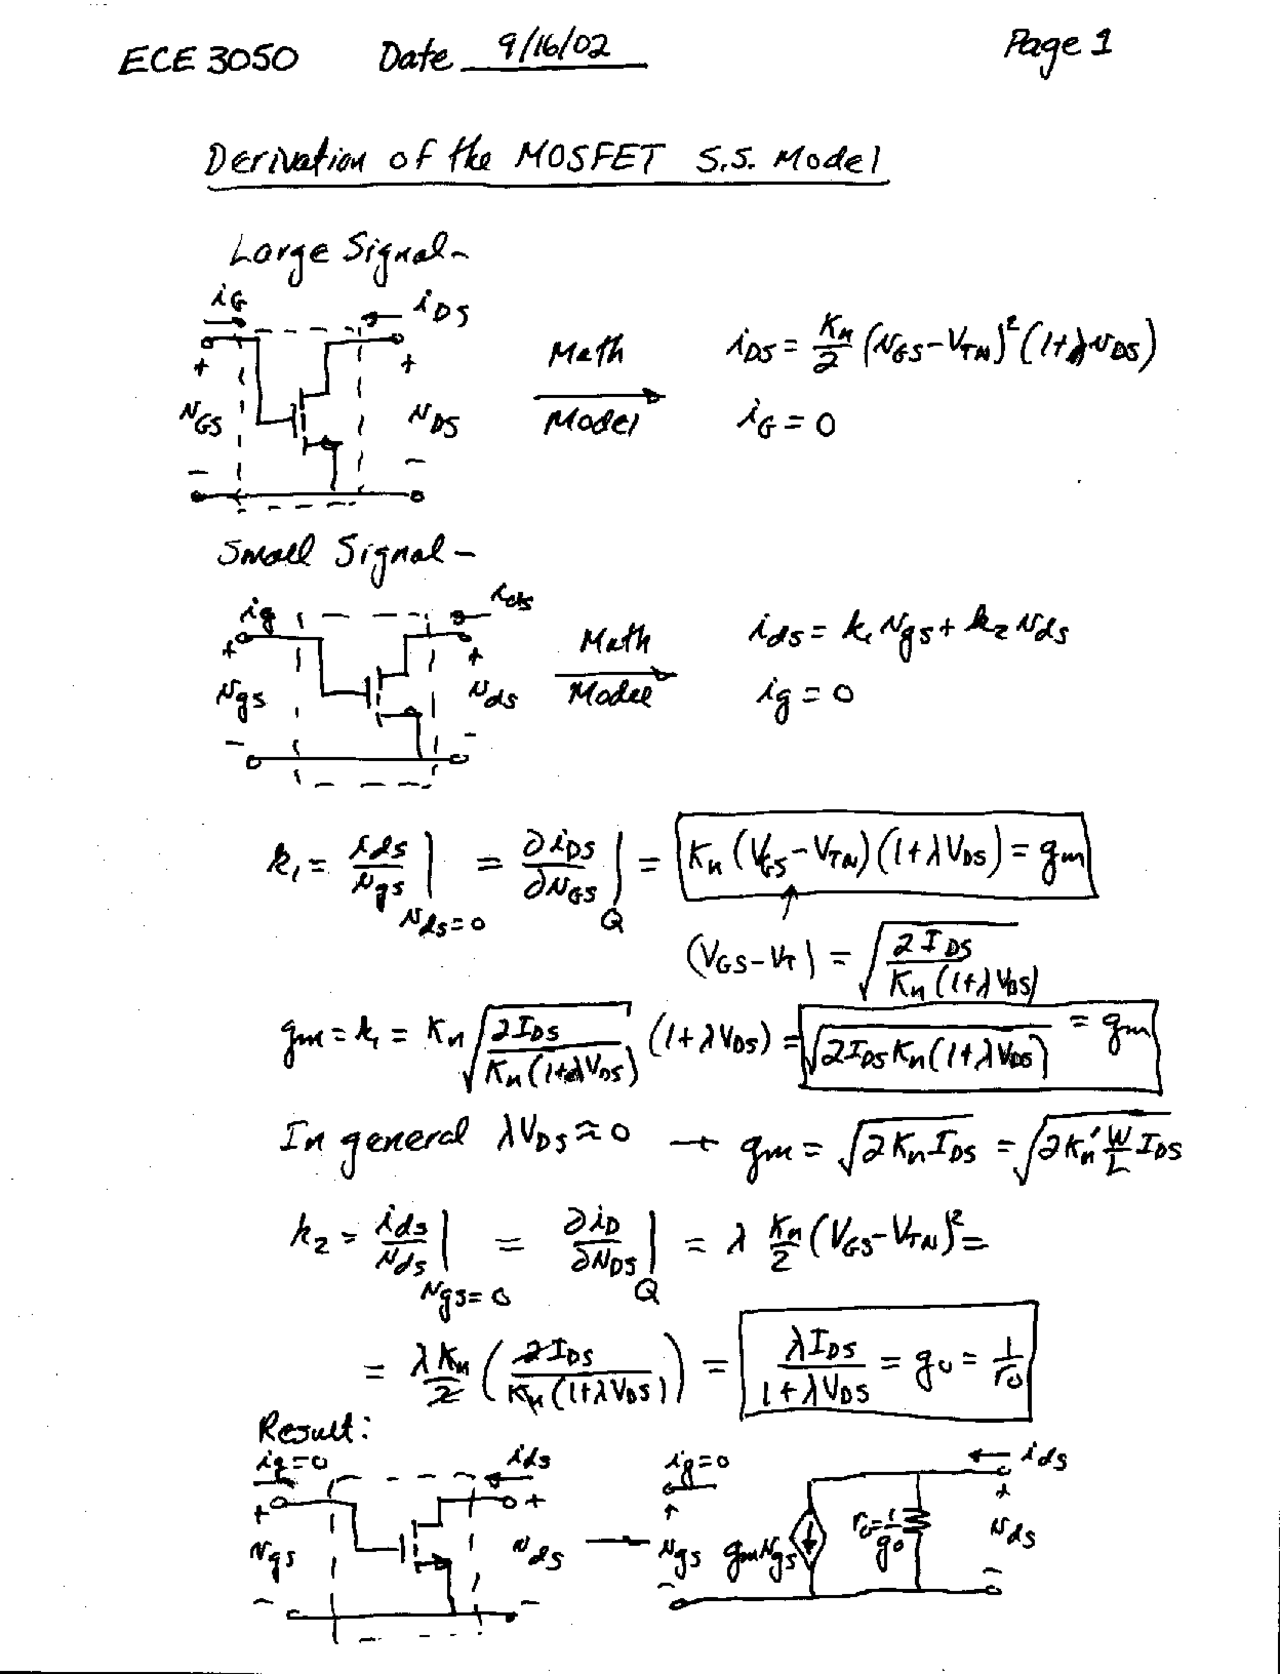 ECE 3050 Date 9/16/02 Page 1
Derivation of the MOSFET S.S. Model
Large Signal-
iG iDS
+ + Math iDS = Kn/2 (vGS-VTN)² (1+λvDS)
vGS vDS Model iG = 0
- -
Small Signal-
ig ids
+ + Math ids = k1 vgs + k2 vds
vgs vds Model ig = 0
- -
k1 = ids/vgs |vds=0 = ∂iDS/∂vGS |Q = Kn (VGS-VTN) (1+λVDS) = gm
(VGS-VT) = √(2IDS/(Kn(1+λVDS)))
gm = k1 = Kn √(2IDS/(Kn(1+λVDS))) (1+λVDS) = √(2IDS Kn(1+λVDS)) = gm
In general λVDS≈0 → gm = √(2KnIDS) = √(2Kn' W/L IDS)
k2 = ids/vds |vgs=0 = ∂iD/∂vDS |Q = λ Kn/2 (VGS-VTN)² =
= λKn/2 (2IDS/(Kn(1+λVDS))) = λIDS/(1+λVDS) = go = 1/ro
Result:
ig=0 ids ig=0 ids
+ + + +
vgs vds vgs gmvgs ro=1/go vds
- - - -